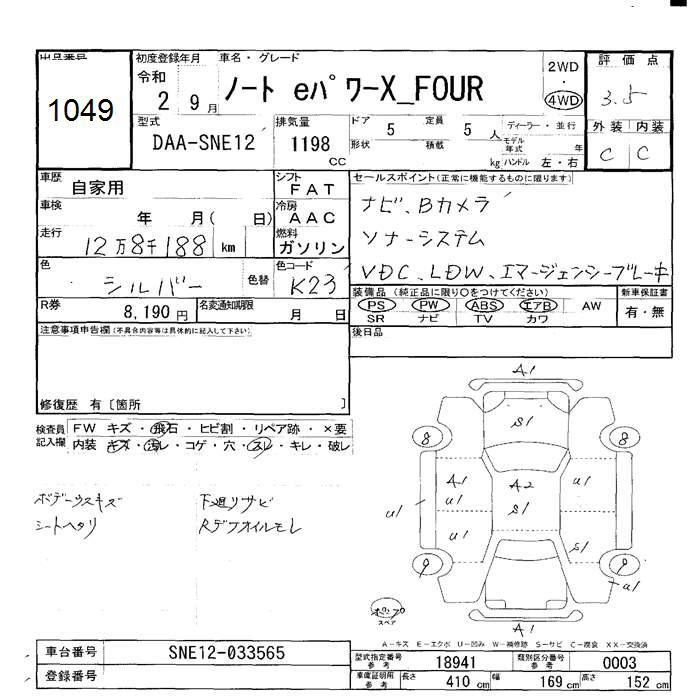 出品番号
1049
初度登録年月
令和
2 9月
車名・グレード
ノート eパワーX_FOUR
2WD
・
4WD
評価点
3.5
型式
DAA-SNE12
排気量
1198
CC
ドア 5 定員 5 人
形状 積載 kg
ディーラー・並行
モデル年式 年
ハンドル 左・右
外装 内装
C C
車歴
自家用
シフト
FAT
セールスポイント(正常に機能するものに限ります)
ナビ、Bカメラ
ソナーシステム
VDC、LDW、エマージェンシーブレーキ
車検
年 月( 日)
冷房
AAC
走行
12万8千188 km
燃料
ガソリン
色
シルバー
色替
色コード
K23
R券
8,190円
名変通知期限
月 日
装備品(純正品に限り○をつけてください)
PS PW ABS エアB AW
SR ナビ TV カワ
新車保証書
有・無
注意事項申告欄(不具合内容等は具体的に記入して下さい)
後日品
修復歴 有〔箇所 〕
検査員記入欄
FW キズ・飛石・ヒビ割・リペア跡・×要
内装 キズ・汚レ・コゲ・穴・スレ・キレ・破レ
ボデーウスキズ
シートヘタリ
下廻りサビ
Rデフオイルモレ
A1
S1
8 8
A1 A2 U1
U1 U1 S1
U1 S1
9 9
U1
A1
スペア
A-キズ E-エクボ U-凹み W-補修跡 S-サビ C-腐食 XX-交換済
車台番号
SNE12-033565
登録番号
型式指定番号 参考
18941
類別区分番号 参考
0003
車庫証明用 参考
長さ 410 cm
幅 169 cm
高さ 152 cm